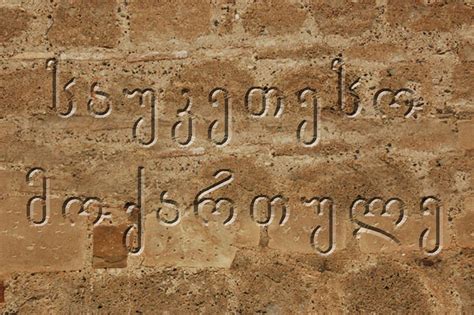 საუკეთესო
მოქართულე